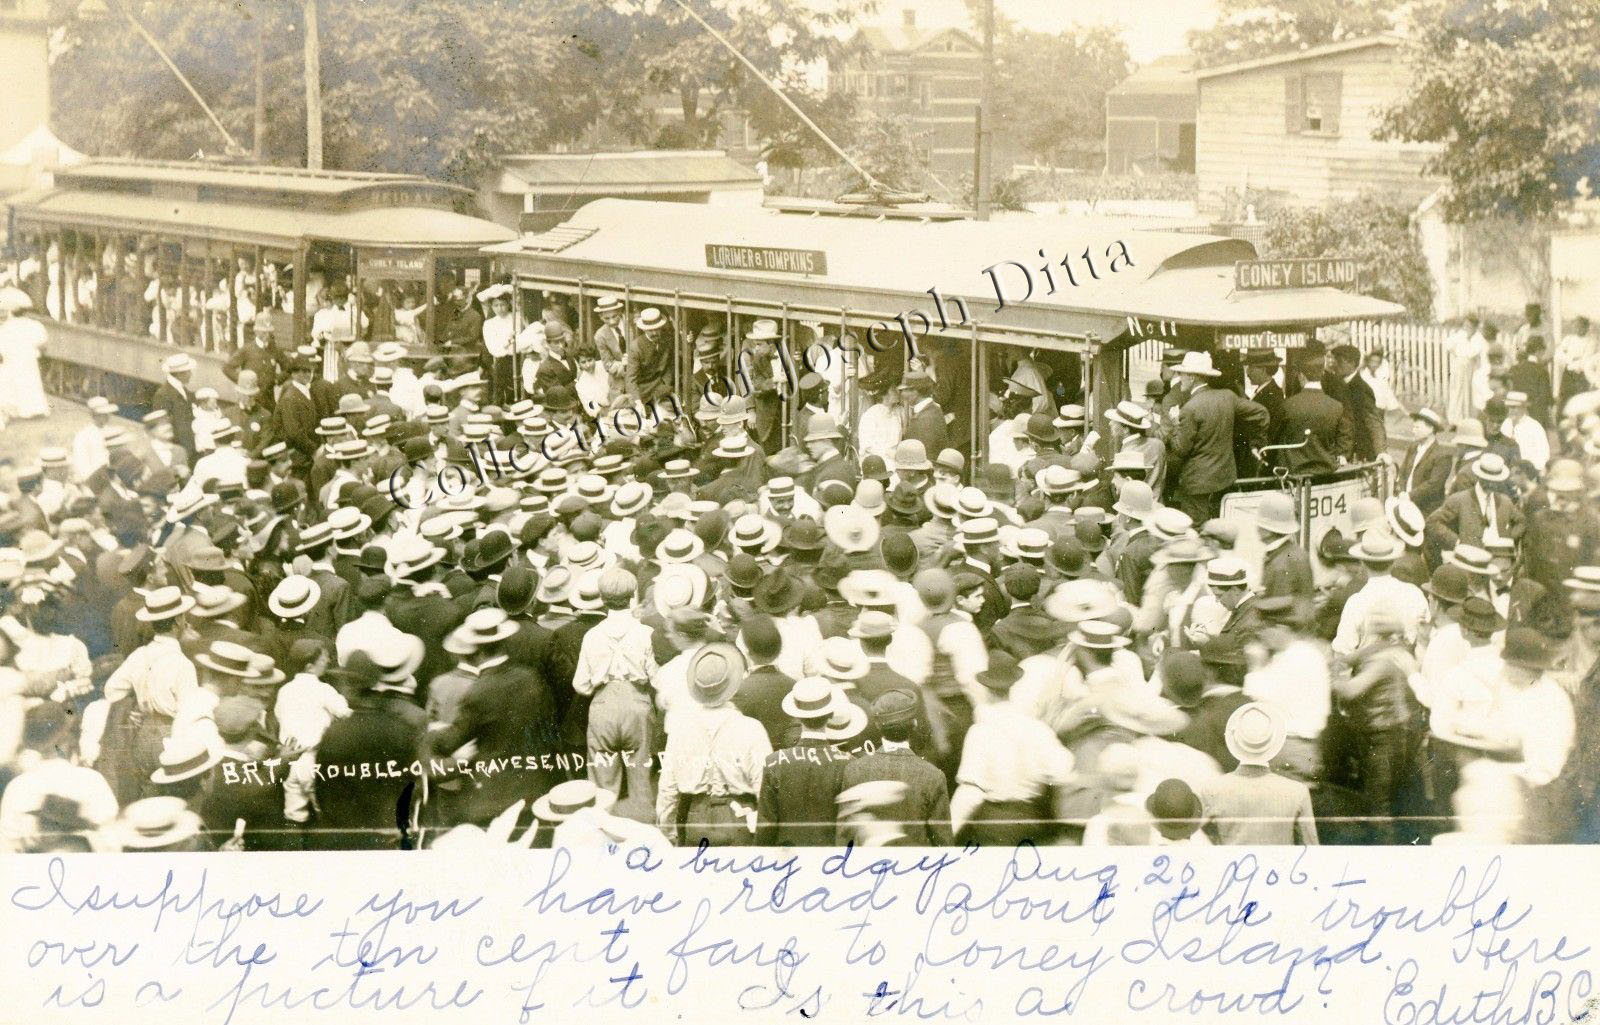 REID AV.
CONEY ISLAND
LORIMER & TOMPKINS
CONEY ISLAND
No 11
CONEY ISLAND
804
Collection of Joseph Ditta
B.R.T. TROUBLE-ON-GRAVESEND-AVE-BROOKLYN-AUG 12-06
"a busy day" Aug. 20, 906.
I suppose you have read about the trouble
over the ten cent fare to Coney Island. Here
is a picture of it. Is this a crowd? Edith B.C.